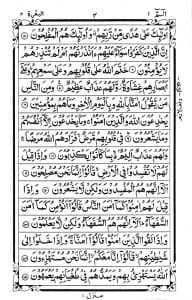 الٓمّٓ ١ ٣ البقرة ٢
اُولٰٓئِكَ عَلٰى هُدًى مِّنْ رَّبِّهِمْ وَاُولٰٓئِكَ هُمُ الْمُفْلِحُوْنَ
اِنَّ الَّذِيْنَ كَفَرُوْا سَوَآءٌ عَلَيْهِمْ ءَاَنْذَرْتَهُمْ اَمْ لَمْ تُنْذِرْهُمْ
لَا يُؤْمِنُوْنَ خَتَمَ اللّٰهُ عَلٰى قُلُوْبِهِمْ وَعَلٰى سَمْعِهِمْ وَعَلٰٓى
اَبْصَارِهِمْ غِشَاوَةٌ وَّلَهُمْ عَذَابٌ عَظِيْمٌ وَمِنَ النَّاسِ مَنْ
يَّقُوْلُ اٰمَنَّا بِاللّٰهِ وَبِالْيَوْمِ الْاٰخِرِ وَمَا هُمْ بِمُؤْمِنِيْنَ
يُخٰدِعُوْنَ اللّٰهَ وَالَّذِيْنَ اٰمَنُوْا وَمَا يَخْدَعُوْنَ اِلَّآ اَنْفُسَهُمْ
وَمَا يَشْعُرُوْنَ فِيْ قُلُوْبِهِمْ مَّرَضٌ فَزَادَهُمُ اللّٰهُ مَرَضًا
وَلَهُمْ عَذَابٌ اَلِيْمٌ بِمَا كَانُوْا يَكْذِبُوْنَ وَاِذَا قِيْلَ
لَهُمْ لَا تُفْسِدُوْا فِي الْاَرْضِ قَالُوْٓا اِنَّمَا نَحْنُ مُصْلِحُوْنَ
اَلَآ اِنَّهُمْ هُمُ الْمُفْسِدُوْنَ وَلٰكِنْ لَّا يَشْعُرُوْنَ وَاِذَا
قِيْلَ لَهُمْ اٰمِنُوْا كَمَآ اٰمَنَ النَّاسُ قَالُوْٓا اَنُؤْمِنُ كَمَآ اٰمَنَ
السُّفَهَآءُ اَلَآ اِنَّهُمْ هُمُ السُّفَهَآءُ وَلٰكِنْ لَّا يَعْلَمُوْنَ
وَاِذَا لَقُوا الَّذِيْنَ اٰمَنُوْا قَالُوْٓا اٰمَنَّا وَاِذَا خَلَوْا اِلٰى
شَيٰطِيْنِهِمْ قَالُوْٓا اِنَّا مَعَكُمْ اِنَّمَا نَحْنُ مُسْتَهْزِءُوْنَ
اَللّٰهُ يَسْتَهْزِئُ بِهِمْ وَيَمُدُّهُمْ فِيْ طُغْيَانِهِمْ يَعْمَهُوْنَ
منزل ١